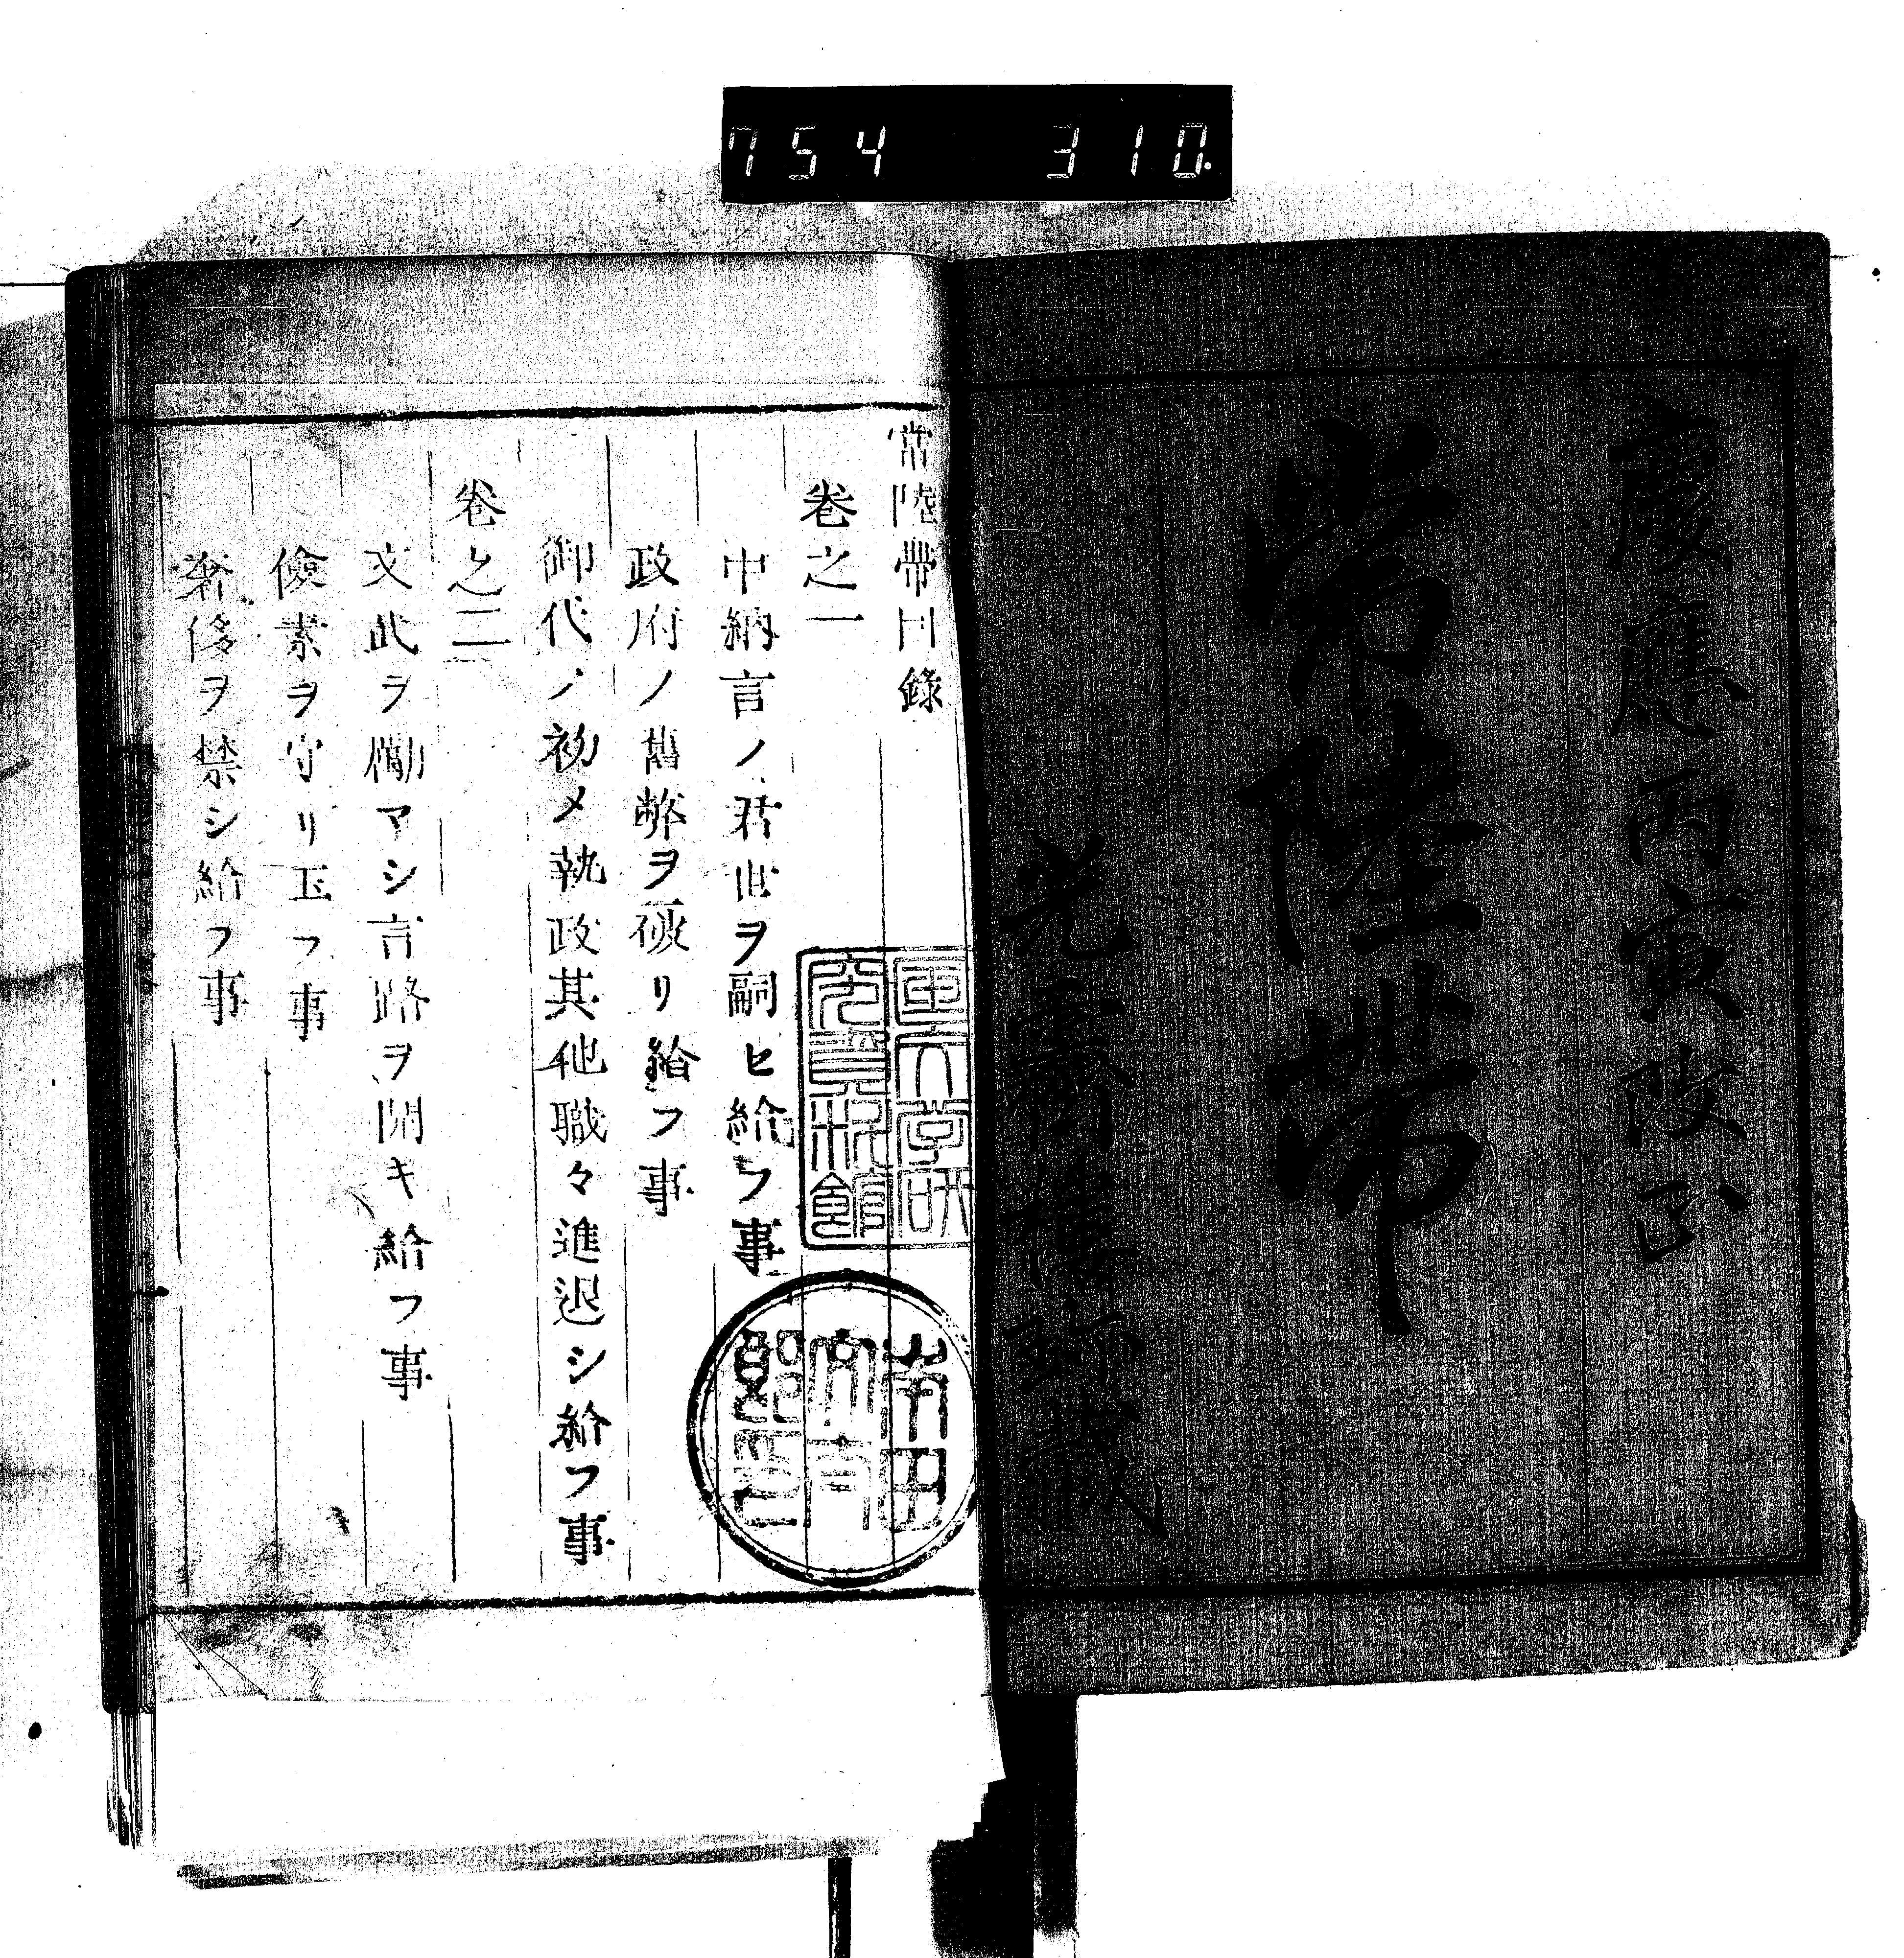 754 310.
慶應丙寅改正
常陸帶
常陸帶目錄
卷之一
中納言ノ君世ヲ嗣ヒ給フ事
政府ノ舊弊ヲ破リ給フ事
御代ノ初メ執政其他職々進退シ給フ事
卷之二
文武ヲ勵マシ言路ヲ開キ給フ事
儉素ヲ守リ玉フ事
奢侈ヲ禁シ給フ事
国文学研
究資料館